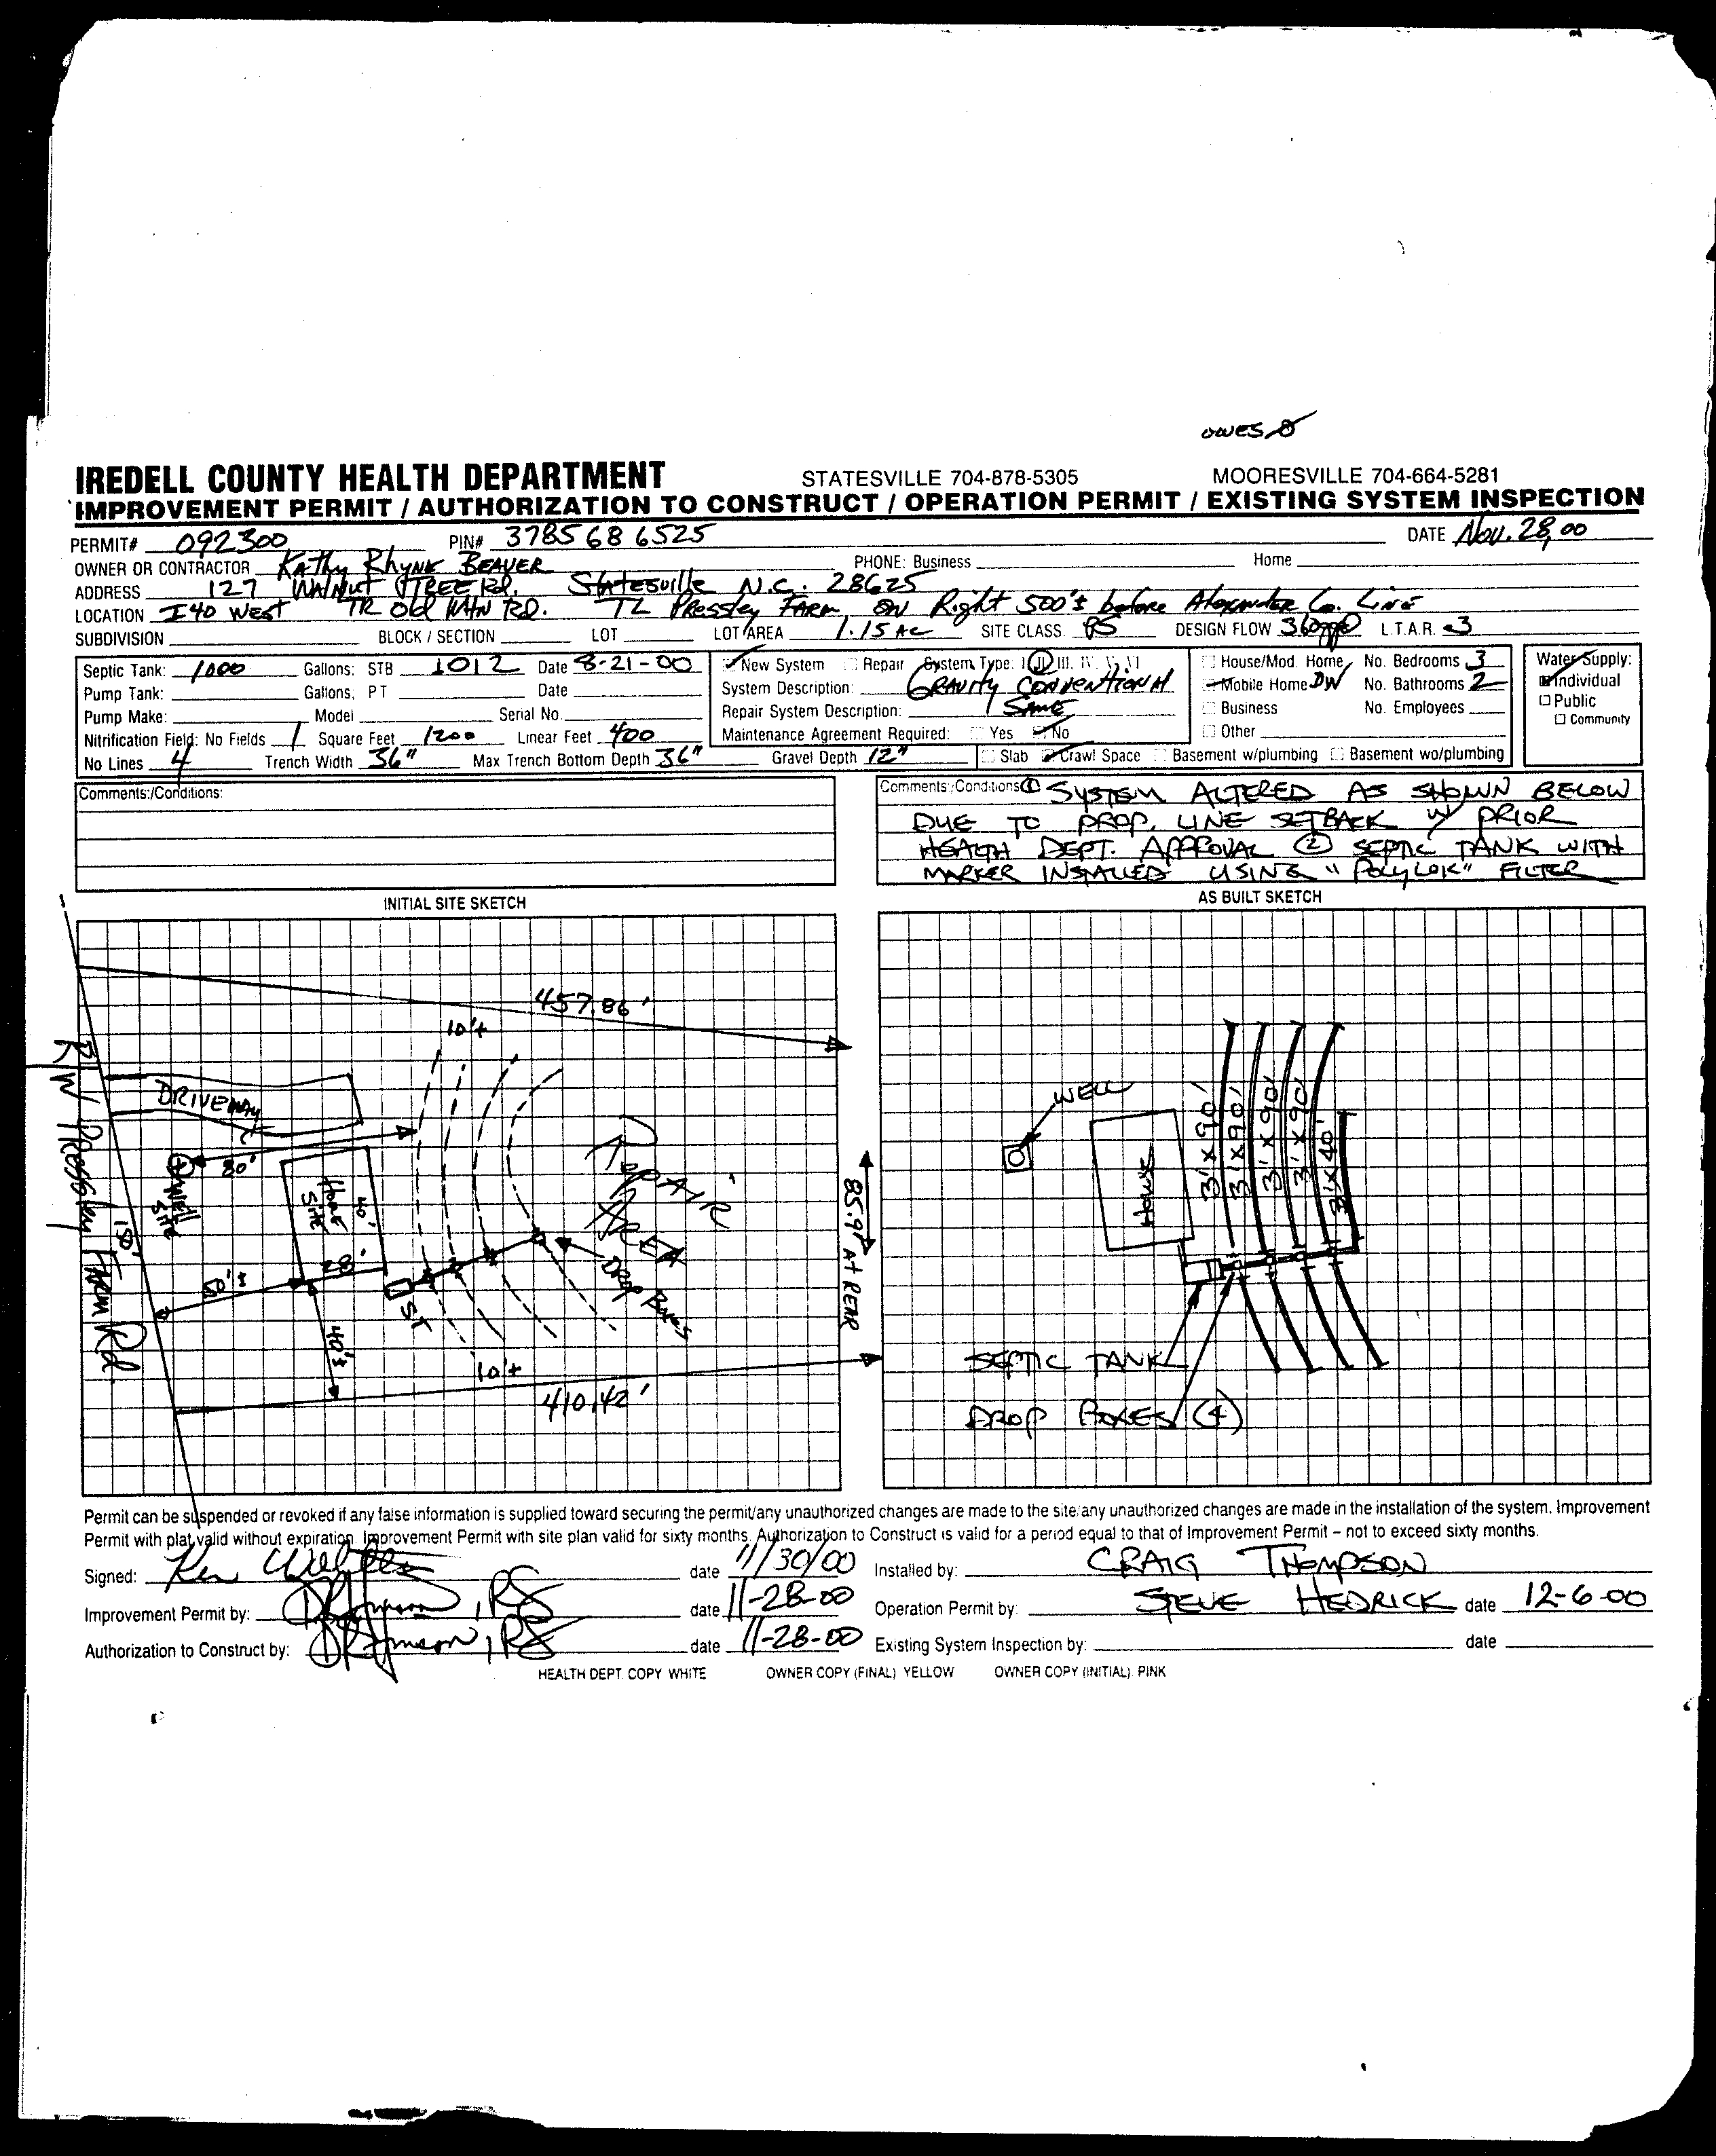 owes 0
IREDELL COUNTY HEALTH DEPARTMENT STATESVILLE 704-878-5305 MOORESVILLE 704-664-5281
IMPROVEMENT PERMIT / AUTHORIZATION TO CONSTRUCT / OPERATION PERMIT / EXISTING SYSTEM INSPECTION
PERMIT# 092300 PIN# 3785686525 DATE Nov. 28, 00
OWNER OR CONTRACTOR Kathy Rhyne BEAVER PHONE: Business Home
ADDRESS 127 WALNUT TREE Rd. Statesville N.C. 28625
LOCATION I40 West TR Old Mtn RD. TL Pressley FARM on Right 500'± before Alexander Co. Line
SUBDIVISION BLOCK / SECTION LOT LOT AREA 1.15 Ac SITE CLASS. PS DESIGN FLOW 360gpd L.T.A.R. .3
Septic Tank: 1000 Gallons: STB 1012 Date 8-21-00
Pump Tank: Gallons: PT Date
Pump Make: Model Serial No.
Nitrification Field: No Fields 1 Square Feet 1200 Linear Feet 400
No Lines 4 Trench Width 36" Max Trench Bottom Depth 36" Gravel Depth 12"
New System Repair System Type: I II III. IV. V. VI
System Description: GRAVITY CONVENTIONAL
Repair System Description: SAME
Maintenance Agreement Required: Yes No
House/Mod. Home No. Bedrooms 3
Mobile Home DW No. Bathrooms 2
Business No. Employees
Other
Slab Crawl Space Basement w/plumbing Basement wo/plumbing
Water Supply:
Individual
Public
Community
Comments:/Conditions:
Comments:/Conditions: ① SYSTEM ALTERED AS SHOWN BELOW
DUE TO PROP. LINE SETBACK w/ PRIOR
HEALTH DEPT. APPROVAL ② SEPTIC TANK WITH
MARKER INSTALLED USING "POLYLOK" FILTER
INITIAL SITE SKETCH
457.86'
10'+
R/W Pressley Farm Rd.
DRIVEWAY
80'
Well Site
Home Site
40'
28'
150'
50'±
40'±
ST
REPAIR AREA
DROP Boxes
10'+
410.42'
85.97 At REAR
AS BUILT SKETCH
WELL
House
3'x90'
3'x90'
3'x90'
3'x90'
3'x40'
SEPTIC TANK
DROP BOXES (4)
Permit can be suspended or revoked if any false information is supplied toward securing the permit/any unauthorized changes are made to the site/any unauthorized changes are made in the installation of the system. Improvement
Permit with plat valid without expiration. Improvement Permit with site plan valid for sixty months. Authorization to Construct is valid for a period equal to that of Improvement Permit – not to exceed sixty months.
Signed: Ken date 11/30/00 Installed by: CRAIG THOMPSON
Improvement Permit by: , RS date 11-28-00 Operation Permit by: STEVE HEDRICK date 12-6-00
Authorization to Construct by: , RS date 11-28-00 Existing System Inspection by: date
HEALTH DEPT. COPY WHITE OWNER COPY (FINAL) YELLOW OWNER COPY (INITIAL) PINK